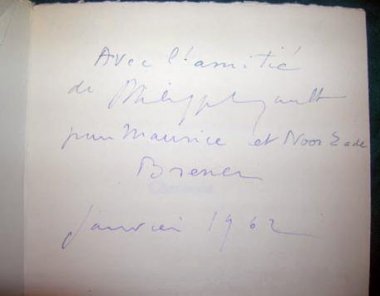 Avec l'amitié
de Philippe
pour Maurice et Noor Zade
Brener
Janvier 1962